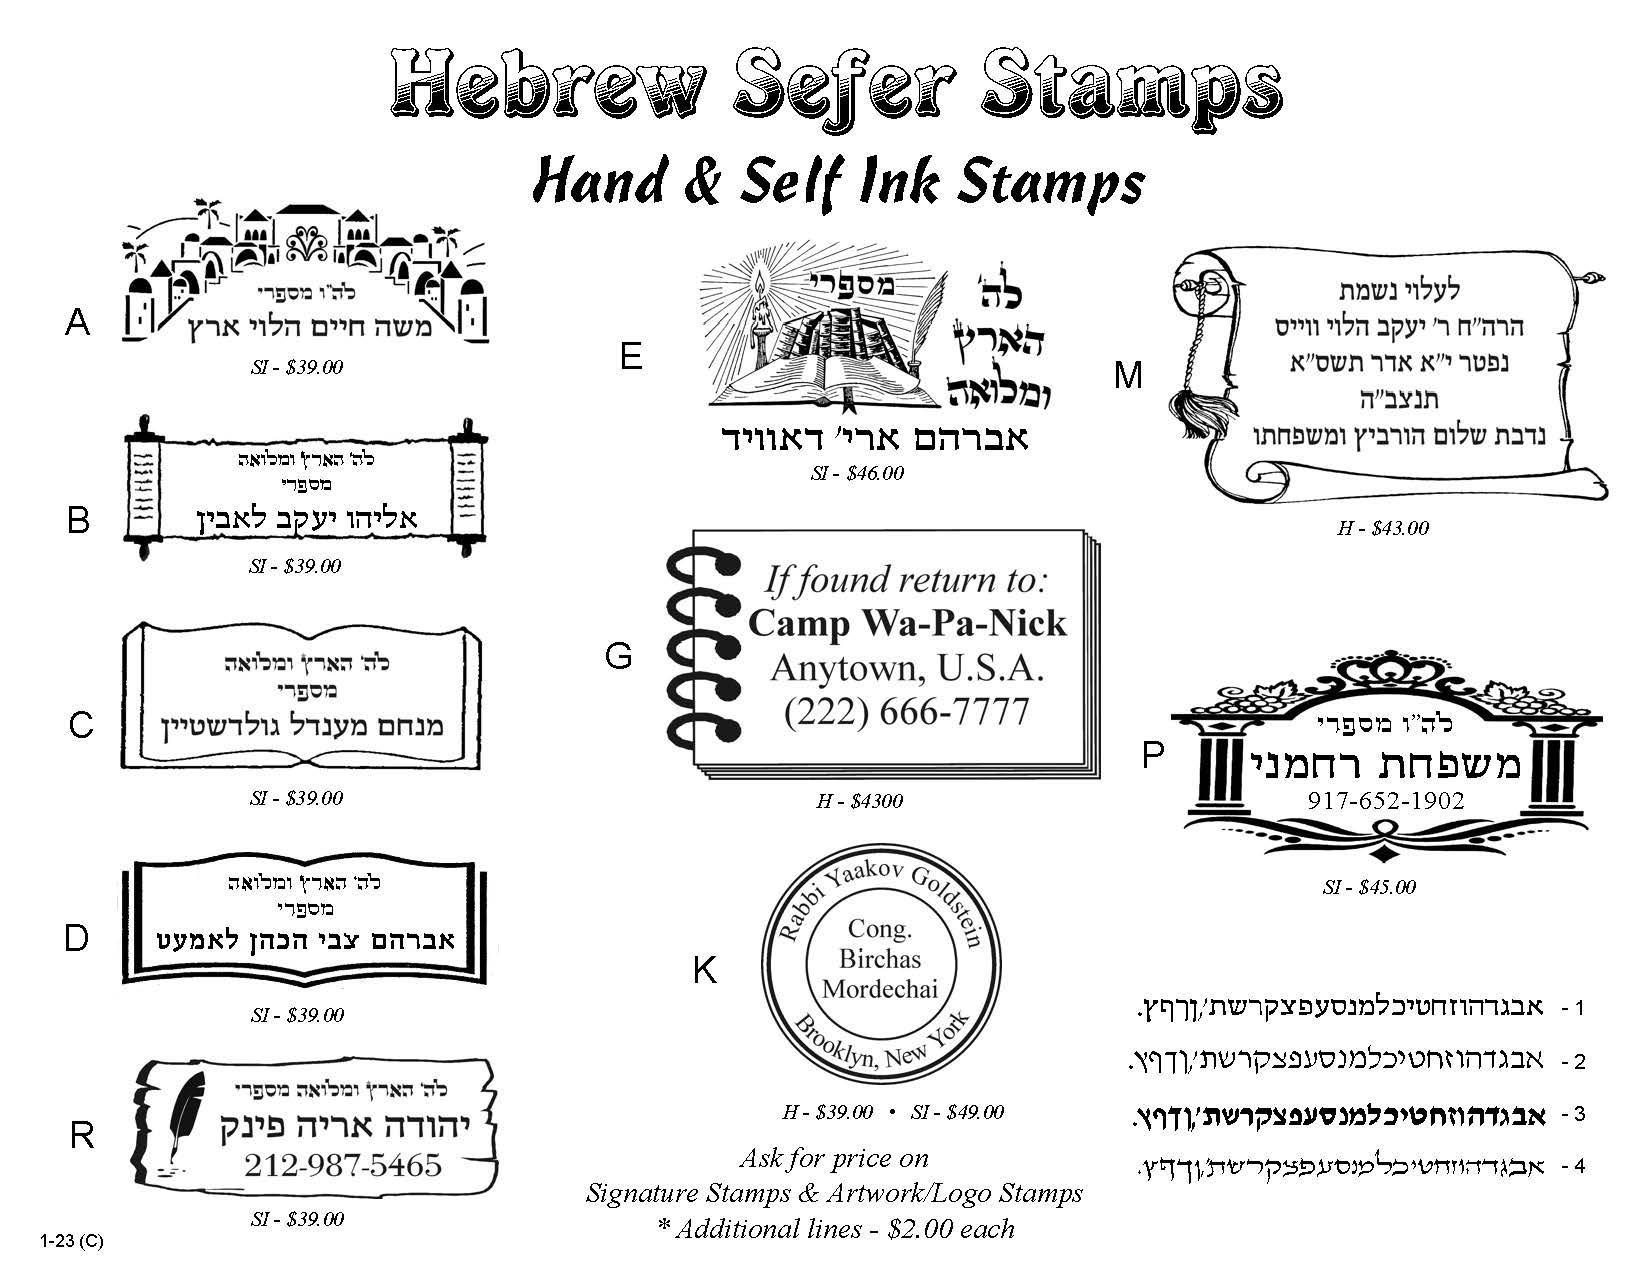 Hebrew Sefer Stamps
Hand & Self Ink Stamps
A
לה"ו מספרי
משה חיים הלוי ארץ
SI - $39.00
B
לה' הארץ ומלואה
מספרי
אליהו יעקב לאבין
SI - $39.00
C
לה' הארץ ומלואה
מספרי
מנחם מענדל גולדשטיין
SI - $39.00
D
לה' הארץ ומלואה
מספרי
אברהם צבי הכהן לאמעט
SI - $39.00
R
לה' הארץ ומלואה מספרי
יהודה אריה פינק
212-987-5465
SI - $39.00
1-23 (C)
E
מספרי
לה'
הארץ
ומלואה
אברהם ארי' דאוויד
SI - $46.00
G
If found return to:
Camp Wa-Pa-Nick
Anytown, U.S.A.
(222) 666-7777
H - $4300
K
Rabbi Yaakov Goldstein
Cong.
Birchas
Mordechai
Brooklyn, New York
H - $39.00 • SI - $49.00
Ask for price on
Signature Stamps & Artwork/Logo Stamps
* Additional lines - $2.00 each
M
לעלוי נשמת
הרה"ח ר' יעקב הלוי ווייס
נפטר י"א אדר תשס"א
תנצב"ה
נדבת שלום הורביץ ומשפחתו
H - $43.00
P
לה"ו מספרי
משפחת רחמני
917-652-1902
SI - $45.00
אבגדהוזחטיכלמנסעפצקרשת',ןךףץ. - 1
אבגדהוזחטיכלמנסעפצקרשת',ןךףץ. - 2
אבגדהוזחטיכלמנסעפצקרשת',ןךףץ. - 3
אבגדהוזחטיכלמנסעפצקרשת',ןךףץ. - 4